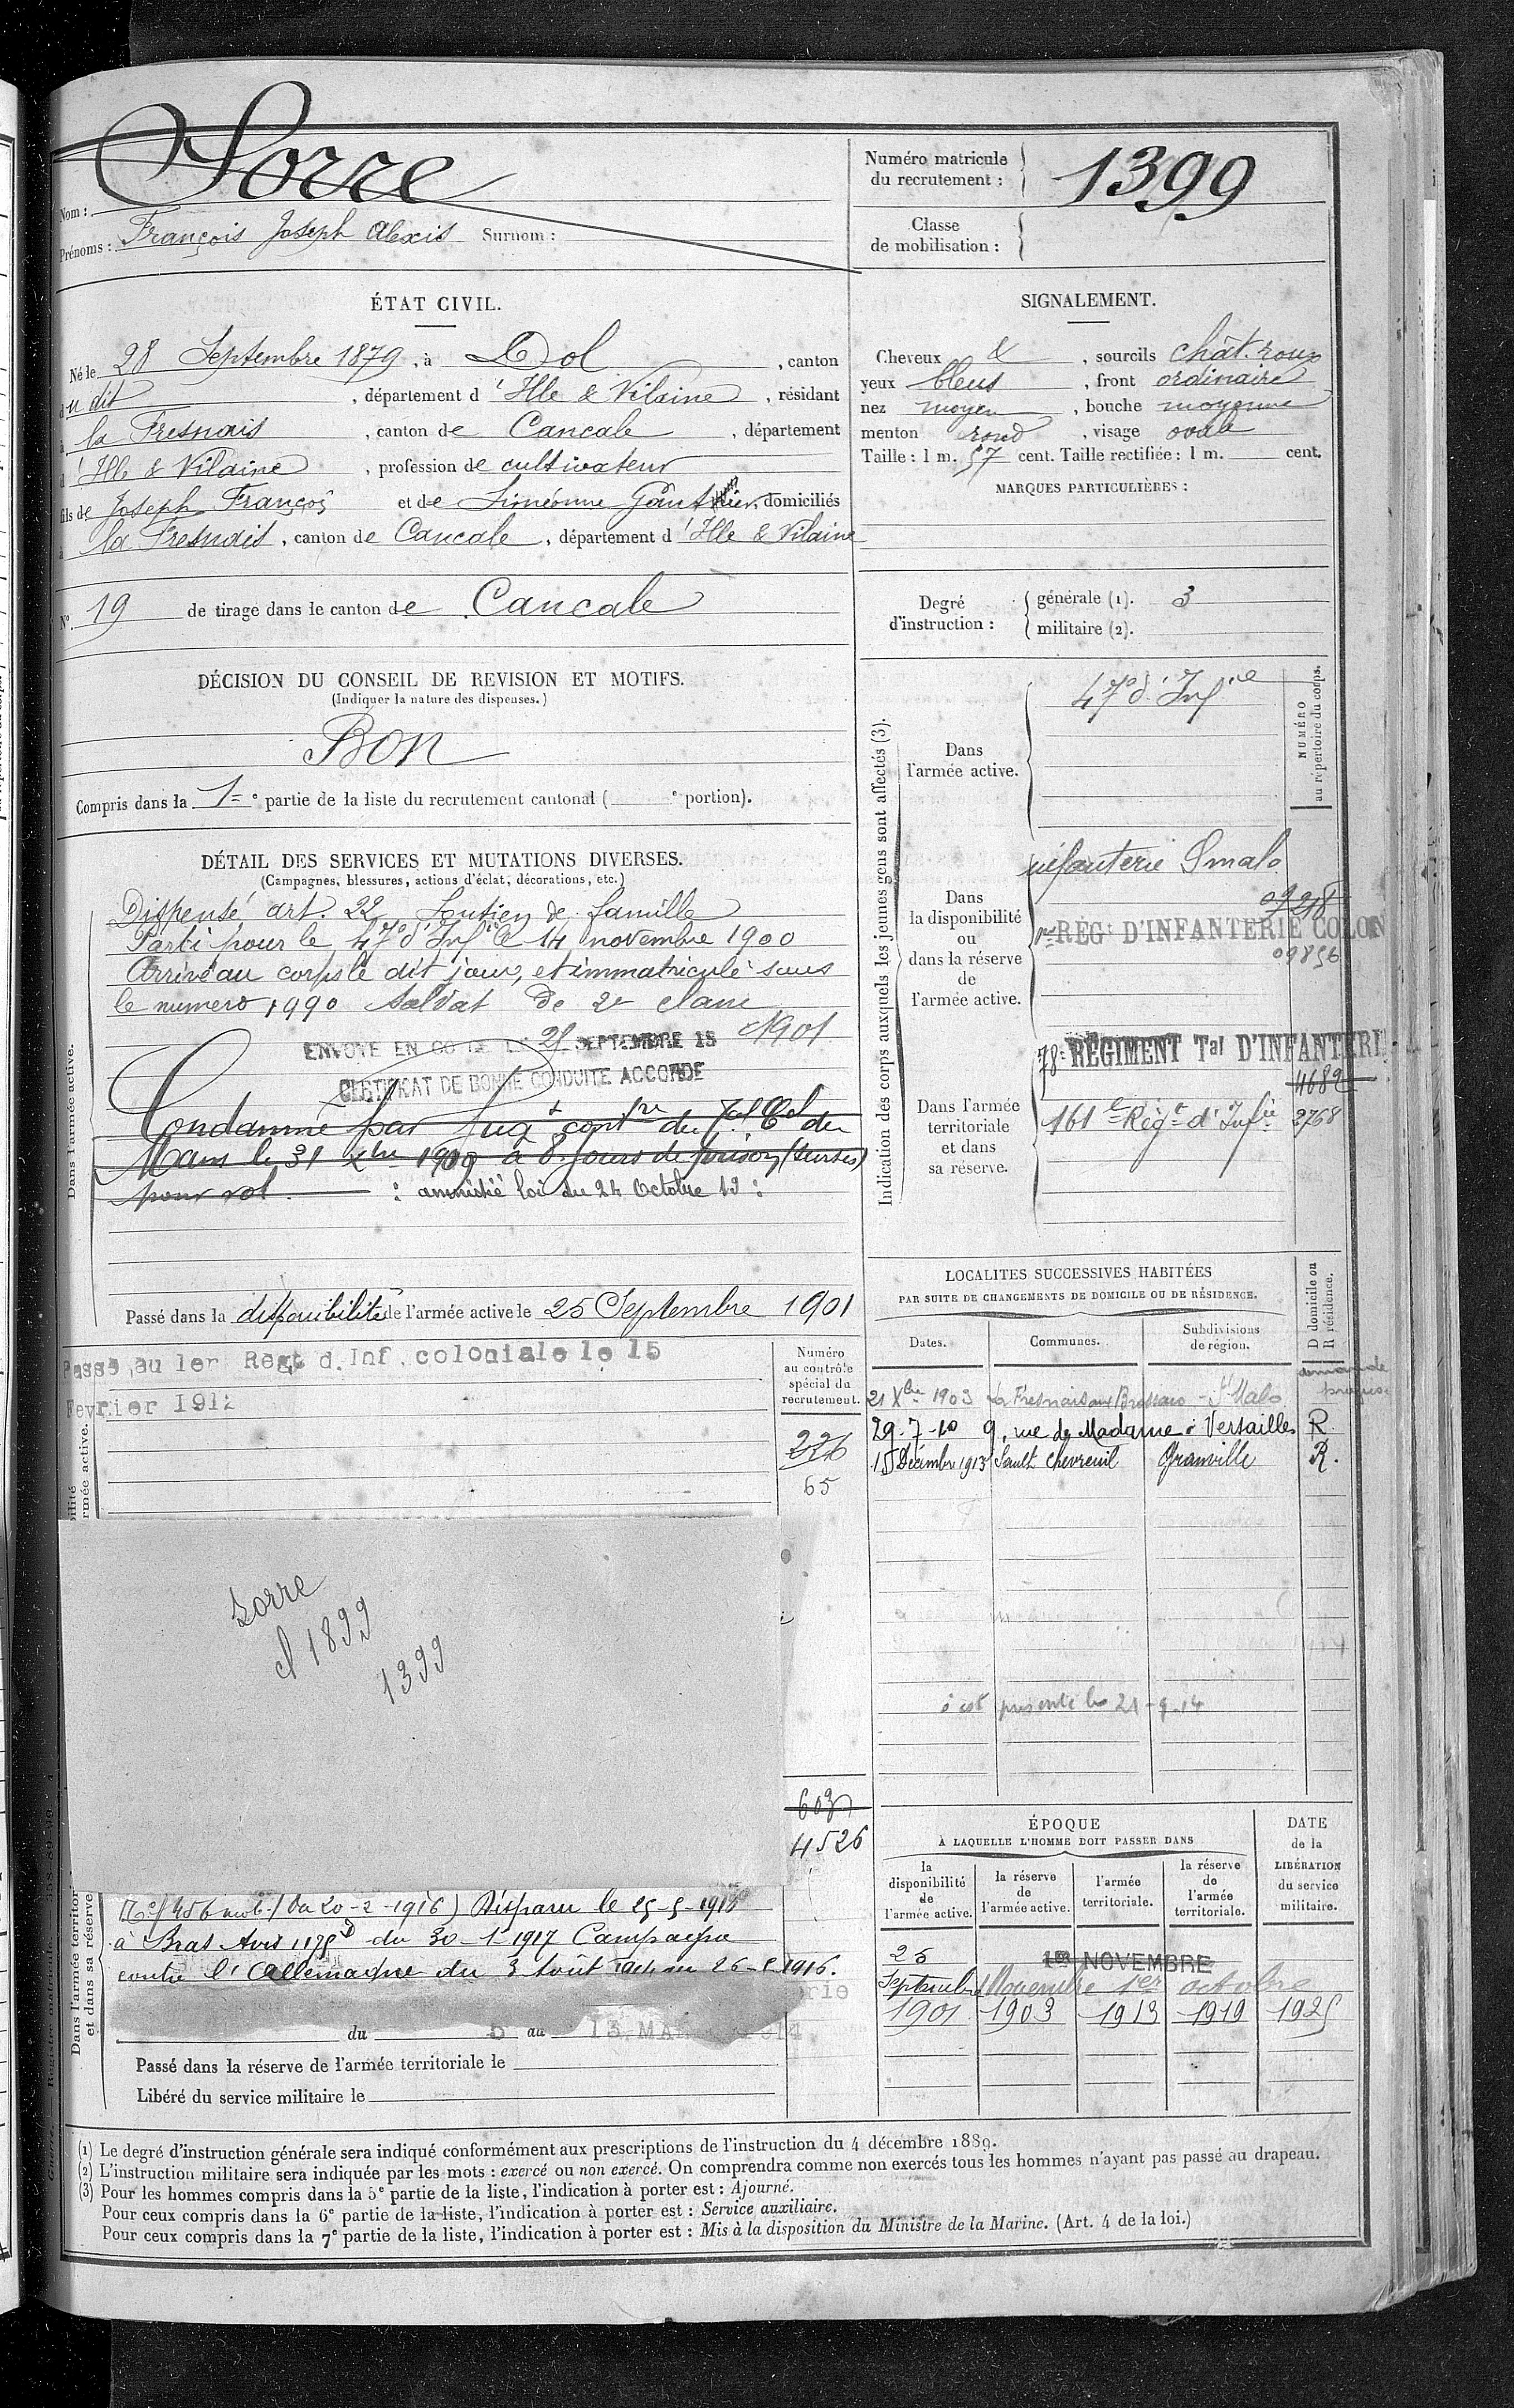 Nom : Sorre
Prénoms : François Joseph Alexis Surnom :
Numéro matricule du recrutement : 1399
Classe de mobilisation :
ÉTAT CIVIL.
Né le 28 Septembre 1879, à Dol, canton
du dit, département d'Ille & Vilaine, résidant
à la Fresnais, canton de Cancale, département
d'Ille & Vilaine, profession de cultivateur
fils de Joseph François et de Siméonne Gautier, domiciliés
à la Fresnais, canton de Cancale, département d'Ille & Vilaine
N° 19 de tirage dans le canton de Cancale
SIGNALEMENT.
Cheveux &, sourcils chât. roux
yeux bleus, front ordinaire
nez moyen, bouche moyenne
menton rond, visage ovale
Taille : 1 m. 57 cent. Taille rectifiée : 1 m. cent.
MARQUES PARTICULIÈRES :
Degré d'instruction : générale (1). 3
militaire (2).
DÉCISION DU CONSEIL DE REVISION ET MOTIFS.
(Indiquer la nature des dispenses.)
Bon
Compris dans la 1re partie de la liste du recrutement cantonal ( e portion).
DÉTAIL DES SERVICES ET MUTATIONS DIVERSES.
(Campagnes, blessures, actions d'éclat, décorations, etc.)
Dans l'armée active.
Dispensé art. 22 Soutien de famille
Parti pour le 47e d'Infie le 14 novembre 1900
Arrivé au corps le dit jour, et immatriculé sous
le numero 1990 Soldat de 2e classe
ENVOYÉ EN CONGÉ LE 21 SEPTEMBRE 18 1901
CERTIFICAT DE BONNE CONDUITE ACCORDÉ
Condamné par Jugt contre du Tal Cel du
Mans le 31 Xbre 1909 à 8 jours de prison (sursis)
pour vol. : amnistié loi du 24 Octobre 19 :
Passé dans la disponibilité de l'armée active le 25 Septembre 1901
Passé au 1er Regt d. Inf. coloniale le 15
Fevrier 1912
Numéro au contrôle spécial du recrutement.
226
65
Sorre
cl 1899
1399
6037
4526
Dans l'armée territor. et dans sa réserve
Disparu le 25-5-1916
à Bras Avis 1175 D du 30-1-1917 Campagne
contre l'Allemagne du 3 Août 1914 au 26-5-1916.
du 5 au 13 MA 14
Passé dans la réserve de l'armée territoriale le
Libéré du service militaire le
Indication des corps auxquels les jeunes gens sont affectés (3).
NUMÉRO au répertoire du corps.
Dans l'armée active.
47e d'Infie
Dans la disponibilité ou dans la réserve de l'armée active.
infanterie St malo
1er RÉGt D'INFANTERIE COLON
09856
Dans l'armée territoriale et dans sa réserve.
78e RÉGIMENT Tal D'INFANTERI
4682
161e Régt d'Infie 2768
LOCALITÉS SUCCESSIVES HABITÉES
PAR SUITE DE CHANGEMENTS DE DOMICILE OU DE RÉSIDENCE.
Dates. Communes. Subdivisions de région. D domicile ou R résidence.
21 Xbre 1903 La Fresnais St Malo
29-7-10 9, rue de Madame à Versailles R.
15 Décembre 1913 Sault Chevreuil Granville R.
s'est présenté le 21-9-14
ÉPOQUE
À LAQUELLE L'HOMME DOIT PASSER DANS
la disponibilité de l'armée active. la réserve de l'armée active. l'armée territoriale. la réserve de l'armée territoriale.
DATE de la LIBÉRATION du service militaire.
25 1er NOVEMBRE
Septembre Novembre 1er octobre
1901 1903 1913 1919 1925
(1) Le degré d'instruction générale sera indiqué conformément aux prescriptions de l'instruction du 4 décembre 1889.
(2) L'instruction militaire sera indiquée par les mots : exercé ou non exercé. On comprendra comme non exercés tous les hommes n'ayant pas passé au drapeau.
(3) Pour les hommes compris dans la 5e partie de la liste, l'indication à porter est : Ajourné.
Pour ceux compris dans la 6e partie de la liste, l'indication à porter est : Service auxiliaire.
Pour ceux compris dans la 7e partie de la liste, l'indication à porter est : Mis à la disposition du Ministre de la Marine. (Art. 4 de la loi.)